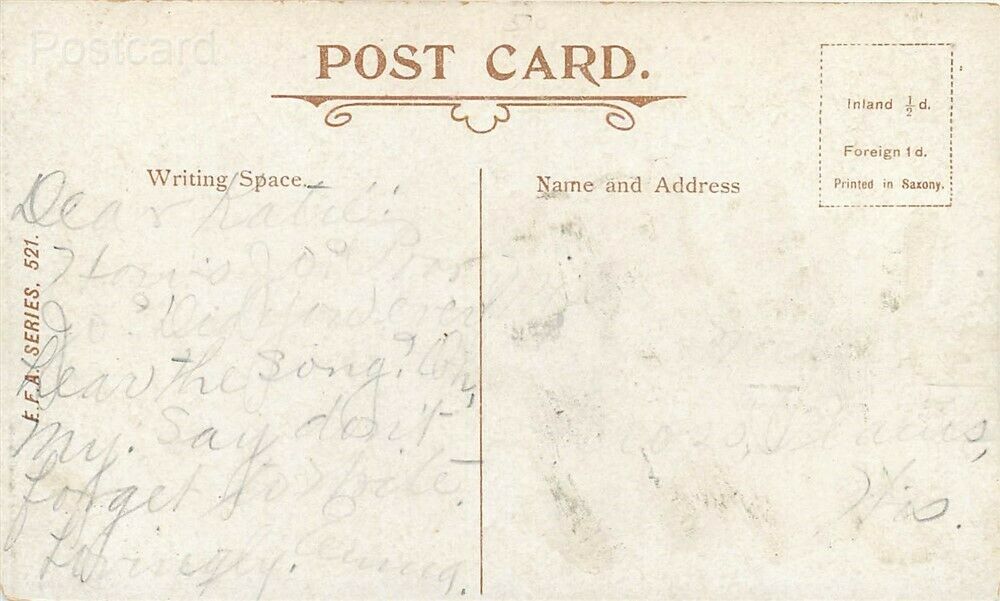 Postcard
POST CARD.
Inland ½d.
Foreign 1d.
Printed in Saxony.
Writing Space.
Name and Address
F.F.A. SERIES, 521.
Dear
Poor
Jo? Did ever
hear the song? Oh,
my. Say don't
forget to write.
Lovingly. Emma.
Wis.